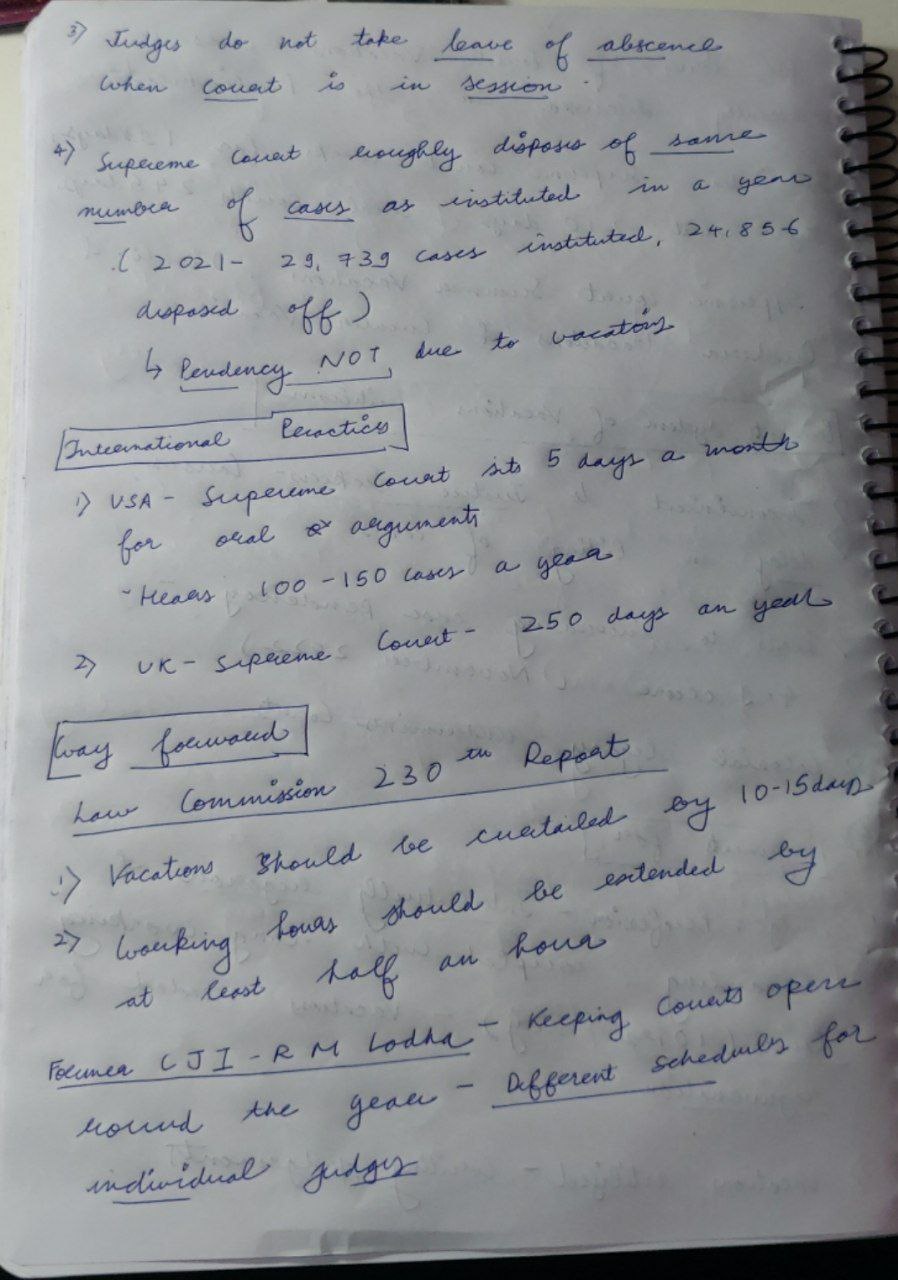 3) Judges do not take leave of abscence
when court is in session.
4) Supreme Court roughly disposes of same
number of cases as instituted in a year
( 2021- 29,739 cases instituted, 24,856
disposed off )
↳ Pendency NOT due to vacations
International Practices
1) USA - Supreme Court sits 5 days a month
for oral arguments
- Hears 100 - 150 cases a year
2) UK - Supreme Court - 250 days an year
Way forward
Law Commission 230th Report
1) Vacations should be curtailed by 10-15 days
2) Working hours should be extended by
at least half an hour
Former CJI - R M Lodha - Keeping Courts open
round the year - Different schedules for
individual judges